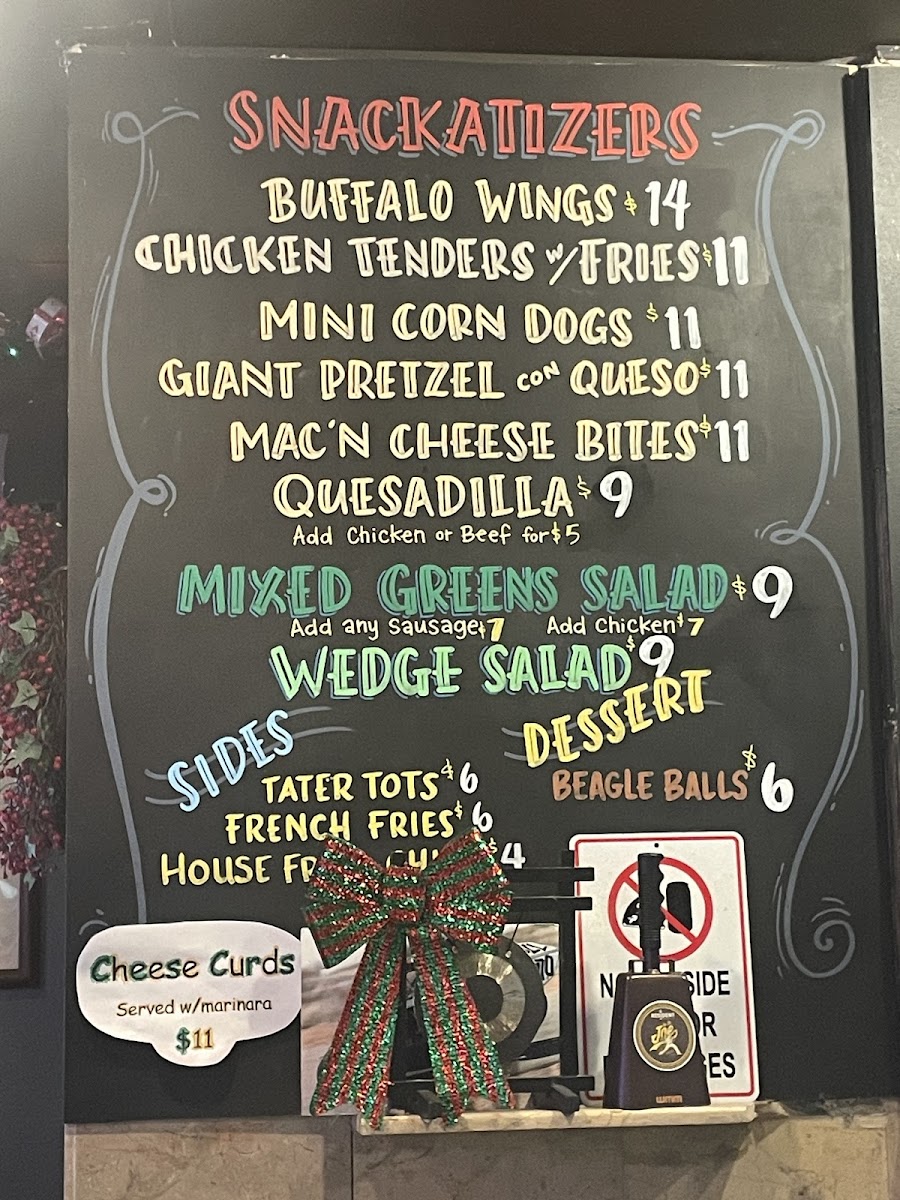 SNACKATIZERS
BUFFALO WINGS $14
CHICKEN TENDERS w/FRIES $11
MINI CORN DOGS $11
GIANT PRETZEL CON QUESO $11
MAC'N CHEESE BITES $11
QUESADILLA $9
Add Chicken or Beef for $5
MIXED GREENS SALAD $9
Add any Sausage $7 Add Chicken $7
WEDGE SALAD $9
SIDES
TATER TOTS $6
FRENCH FRIES $6
HOUSE $4
DESSERT
BEAGLE BALLS $6
Cheese Curds
Served w/marinara
$11